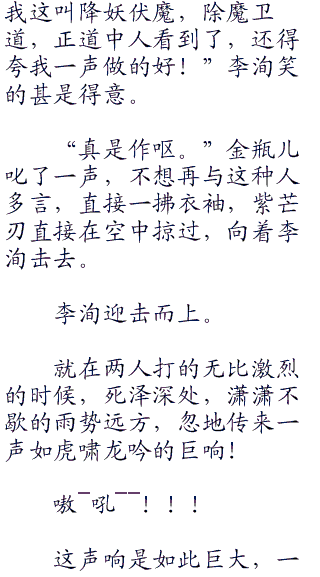 我这叫降妖伏魔，除魔卫
道，正道中人看到了，还得
夸我一声做的好！”李洵笑
的甚是得意。
“真是作呕。”金瓶儿
叱了一声，不想再与这种人
多言，直接一拂衣袖，紫芒
刃直接在空中掠过，向着李
洵击去。
李洵迎击而上。
就在两人打的无比激烈
的时候，死泽深处，潇潇不
歇的雨势远方，忽地传来一
声如虎啸龙吟的巨响！
嗷¯吼¯¯！！！
这声响是如此巨大，一